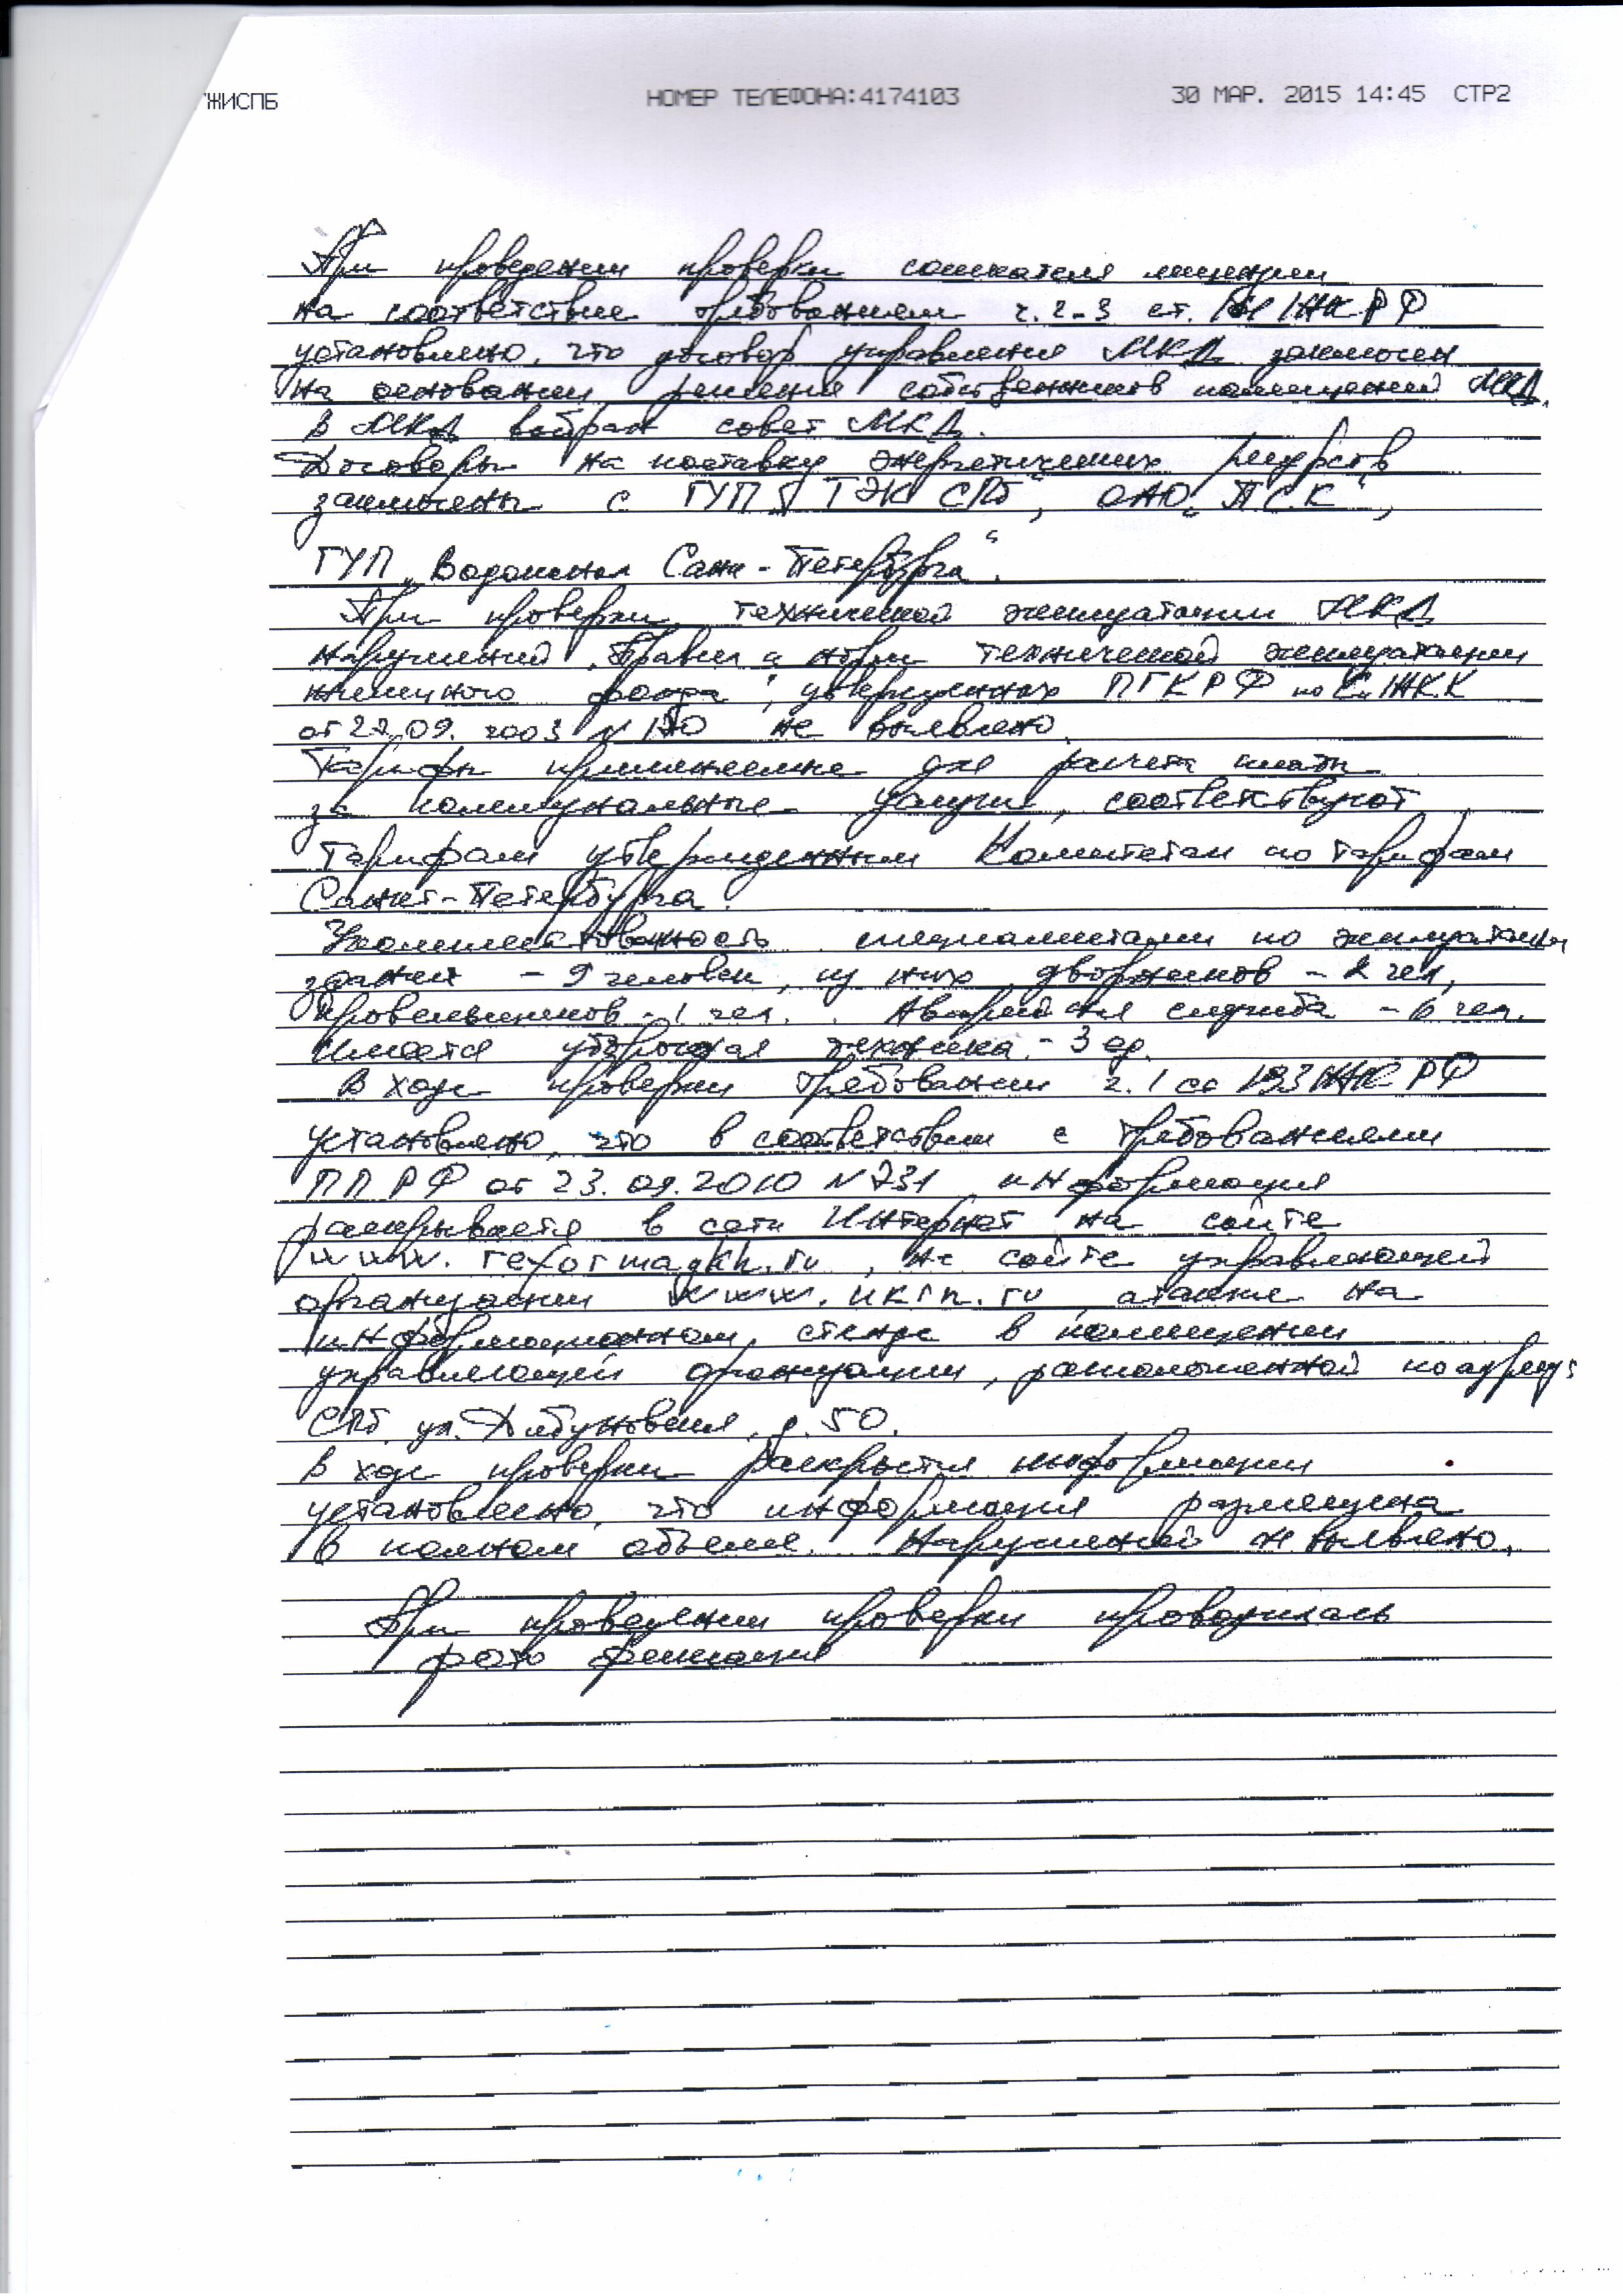 ГЖИСПБ НОМЕР ТЕЛЕФОНА:4174103 30 МАР. 2015 14:45 СТР2
При проведении проверки соискателя лицензии
на соответствие требованиям ч. 2-3 ст. 161 ЖК РФ
установлено, что договор управления МКД заключен
на основании решения собственников помещений МКД.
В МКД выбран совет МКД.
Договоры на поставку энергетических ресурсов
заключены с ГУП „ТЭК СПб", ОАО „ПСК",
ГУП „Водоканал Санк-Петербурга".
При проверки технической эксплуатации МКД
нарушений „Правил и норм технической эксплуатации
жилищного фонда", утвержденных ПГК РФ по С и ЖКК
от 27.09.2003 N 170 не выявлено.
Тарифы применяемые для расчета платы
за коммунальные услуги, соответствуют
Тарифам утвержденным Комитетам по тарифам
Санкт-Петербурга.
Укомплектованность специалистами по эксплуатации
зданий - 9 человек, из них дворников - 2 чел,
кровельщиков - 1 чел. Аварийная служба - 6 чел.
Имеется уборочная техника - 3 ед.
В ходе проверки требовании ч. 1 ст 193 ЖК РФ
установлено, что в соответствии с требованиями
ПП РФ от 23.09.2010 N 731 информация
раскрывается в сети Интернет на сайте
www.reformagkh.ru, на сайте управляющей
организации www.ukrn.ru, а также на
информационном, стенде в помещении
управляющей организации, расположенной по адресу:
СПб, ул. Дибуновская, д. 50.
В ходе проверки раскрытия информации
установлено, что информация размещена
в полном объеме. Нарушений не выявлено.
При проведении проверки проводилась
фото фиксация